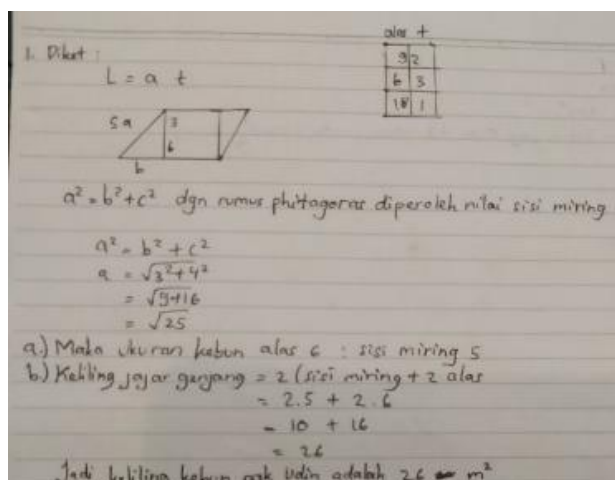 1. Diket :
L = a t
alas t
9 2
6 3
18 1
5 a 3
6
b
a² = b² + c² dgn rumus phitagoras diperoleh nilai sisi miring
a² = b² + c²
a = √3² + 4²
= √9+16
= √25
a.) Maka ukuran kebun alas 6 : sisi miring 5
b.) Keliling jajar genjang = 2 (sisi miring + 2 alas
= 2.5 + 2.6
= 10 + 16
= 26
Jadi keliling kebun pak Udin adalah 26 m²